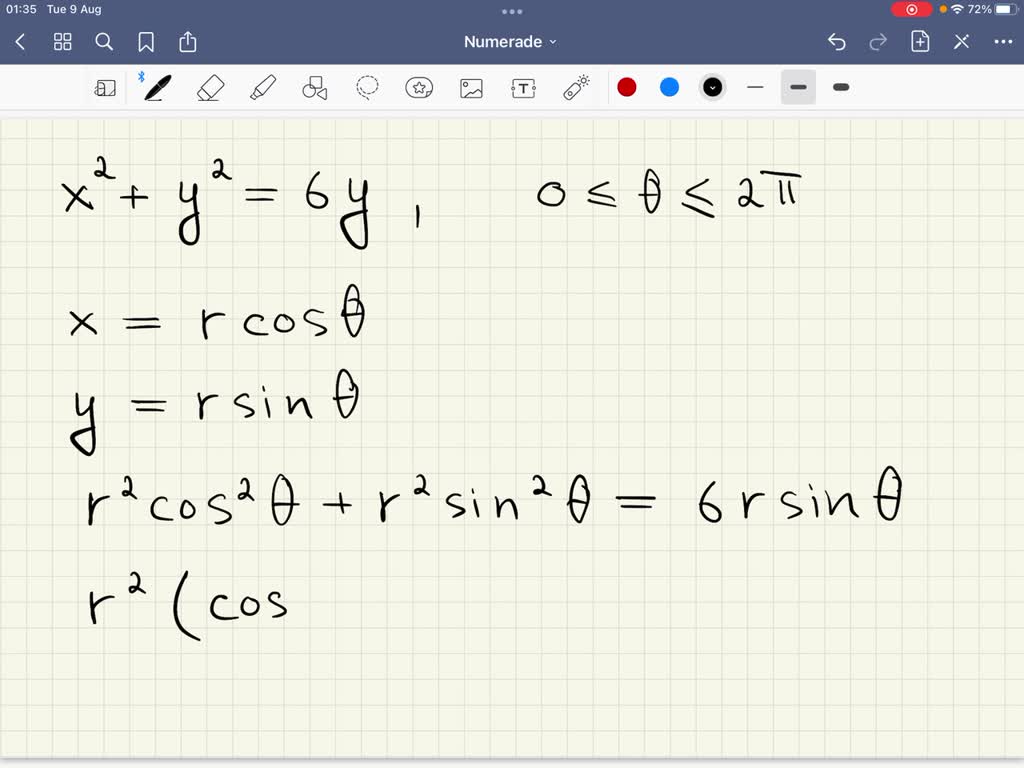 01:35 Tue 9 Aug 72%
Numerade
x² + y² = 6y, 0 ≤ θ ≤ 2π
x = r cos θ
y = r sin θ
r² cos² θ + r² sin² θ = 6 r sin θ
r² (cos